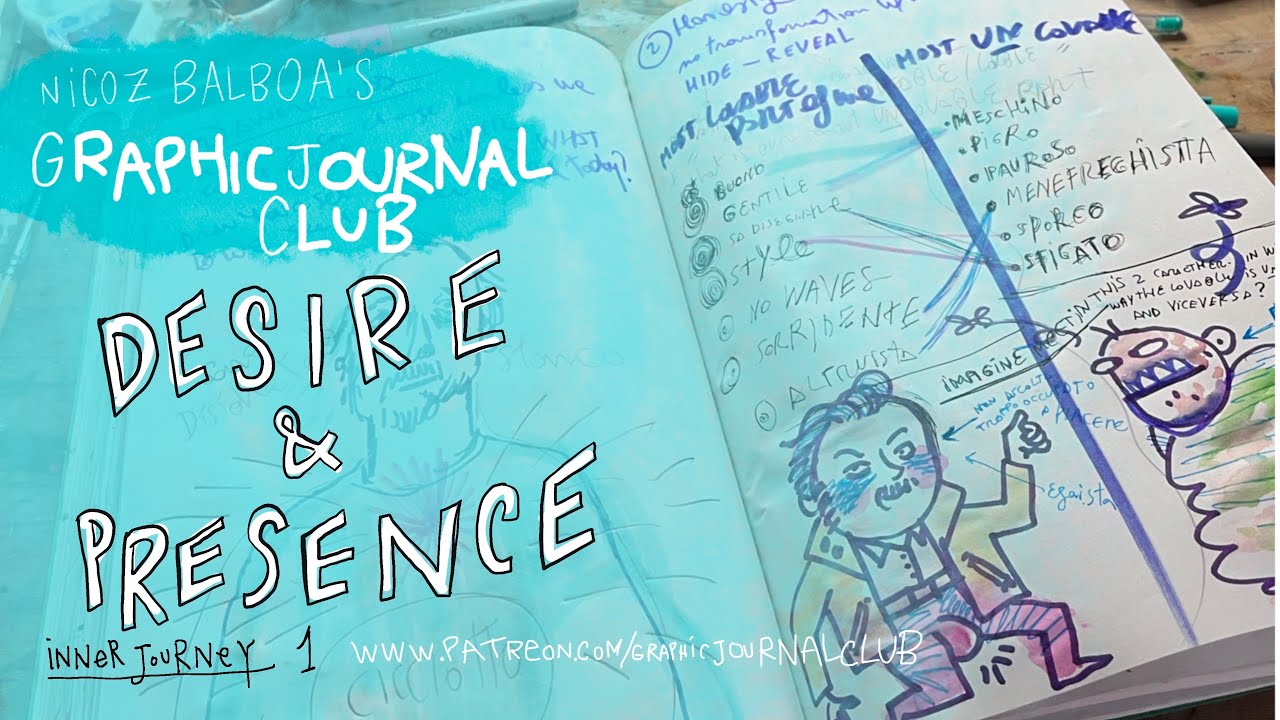 NICOZ BALBOA'S
GRAPHIC JOURNAL
CLUB
DESIRE
&
PRESENCE
INNER JOURNEY 1
WWW.PATREON.COM/GRAPHICJOURNALCLUB
WHAT
today?
CICCIOTTO
② Honesty
no transformation
HIDE — REVEAL
MOST LOVABLE
PART OF me
BUONO
GENTILE
SO DISEGNARE
STYLE
NO WAVES
SORRIDENTE
ALTRUISTA
MOST UN LOVABLE
• MESCHINO
• PIGRO
• PAUROSO
• MENEFREGHISTA
• SPORCO
• SFIGATO
IMAGINE MEETING THIS 2 CARACTHER. IN W
WAY THE LOVABLE IS U
AND VICEVERSA?
NON ASCOLT
TROPPO OCCUPATO
A PIACERE
Egoista